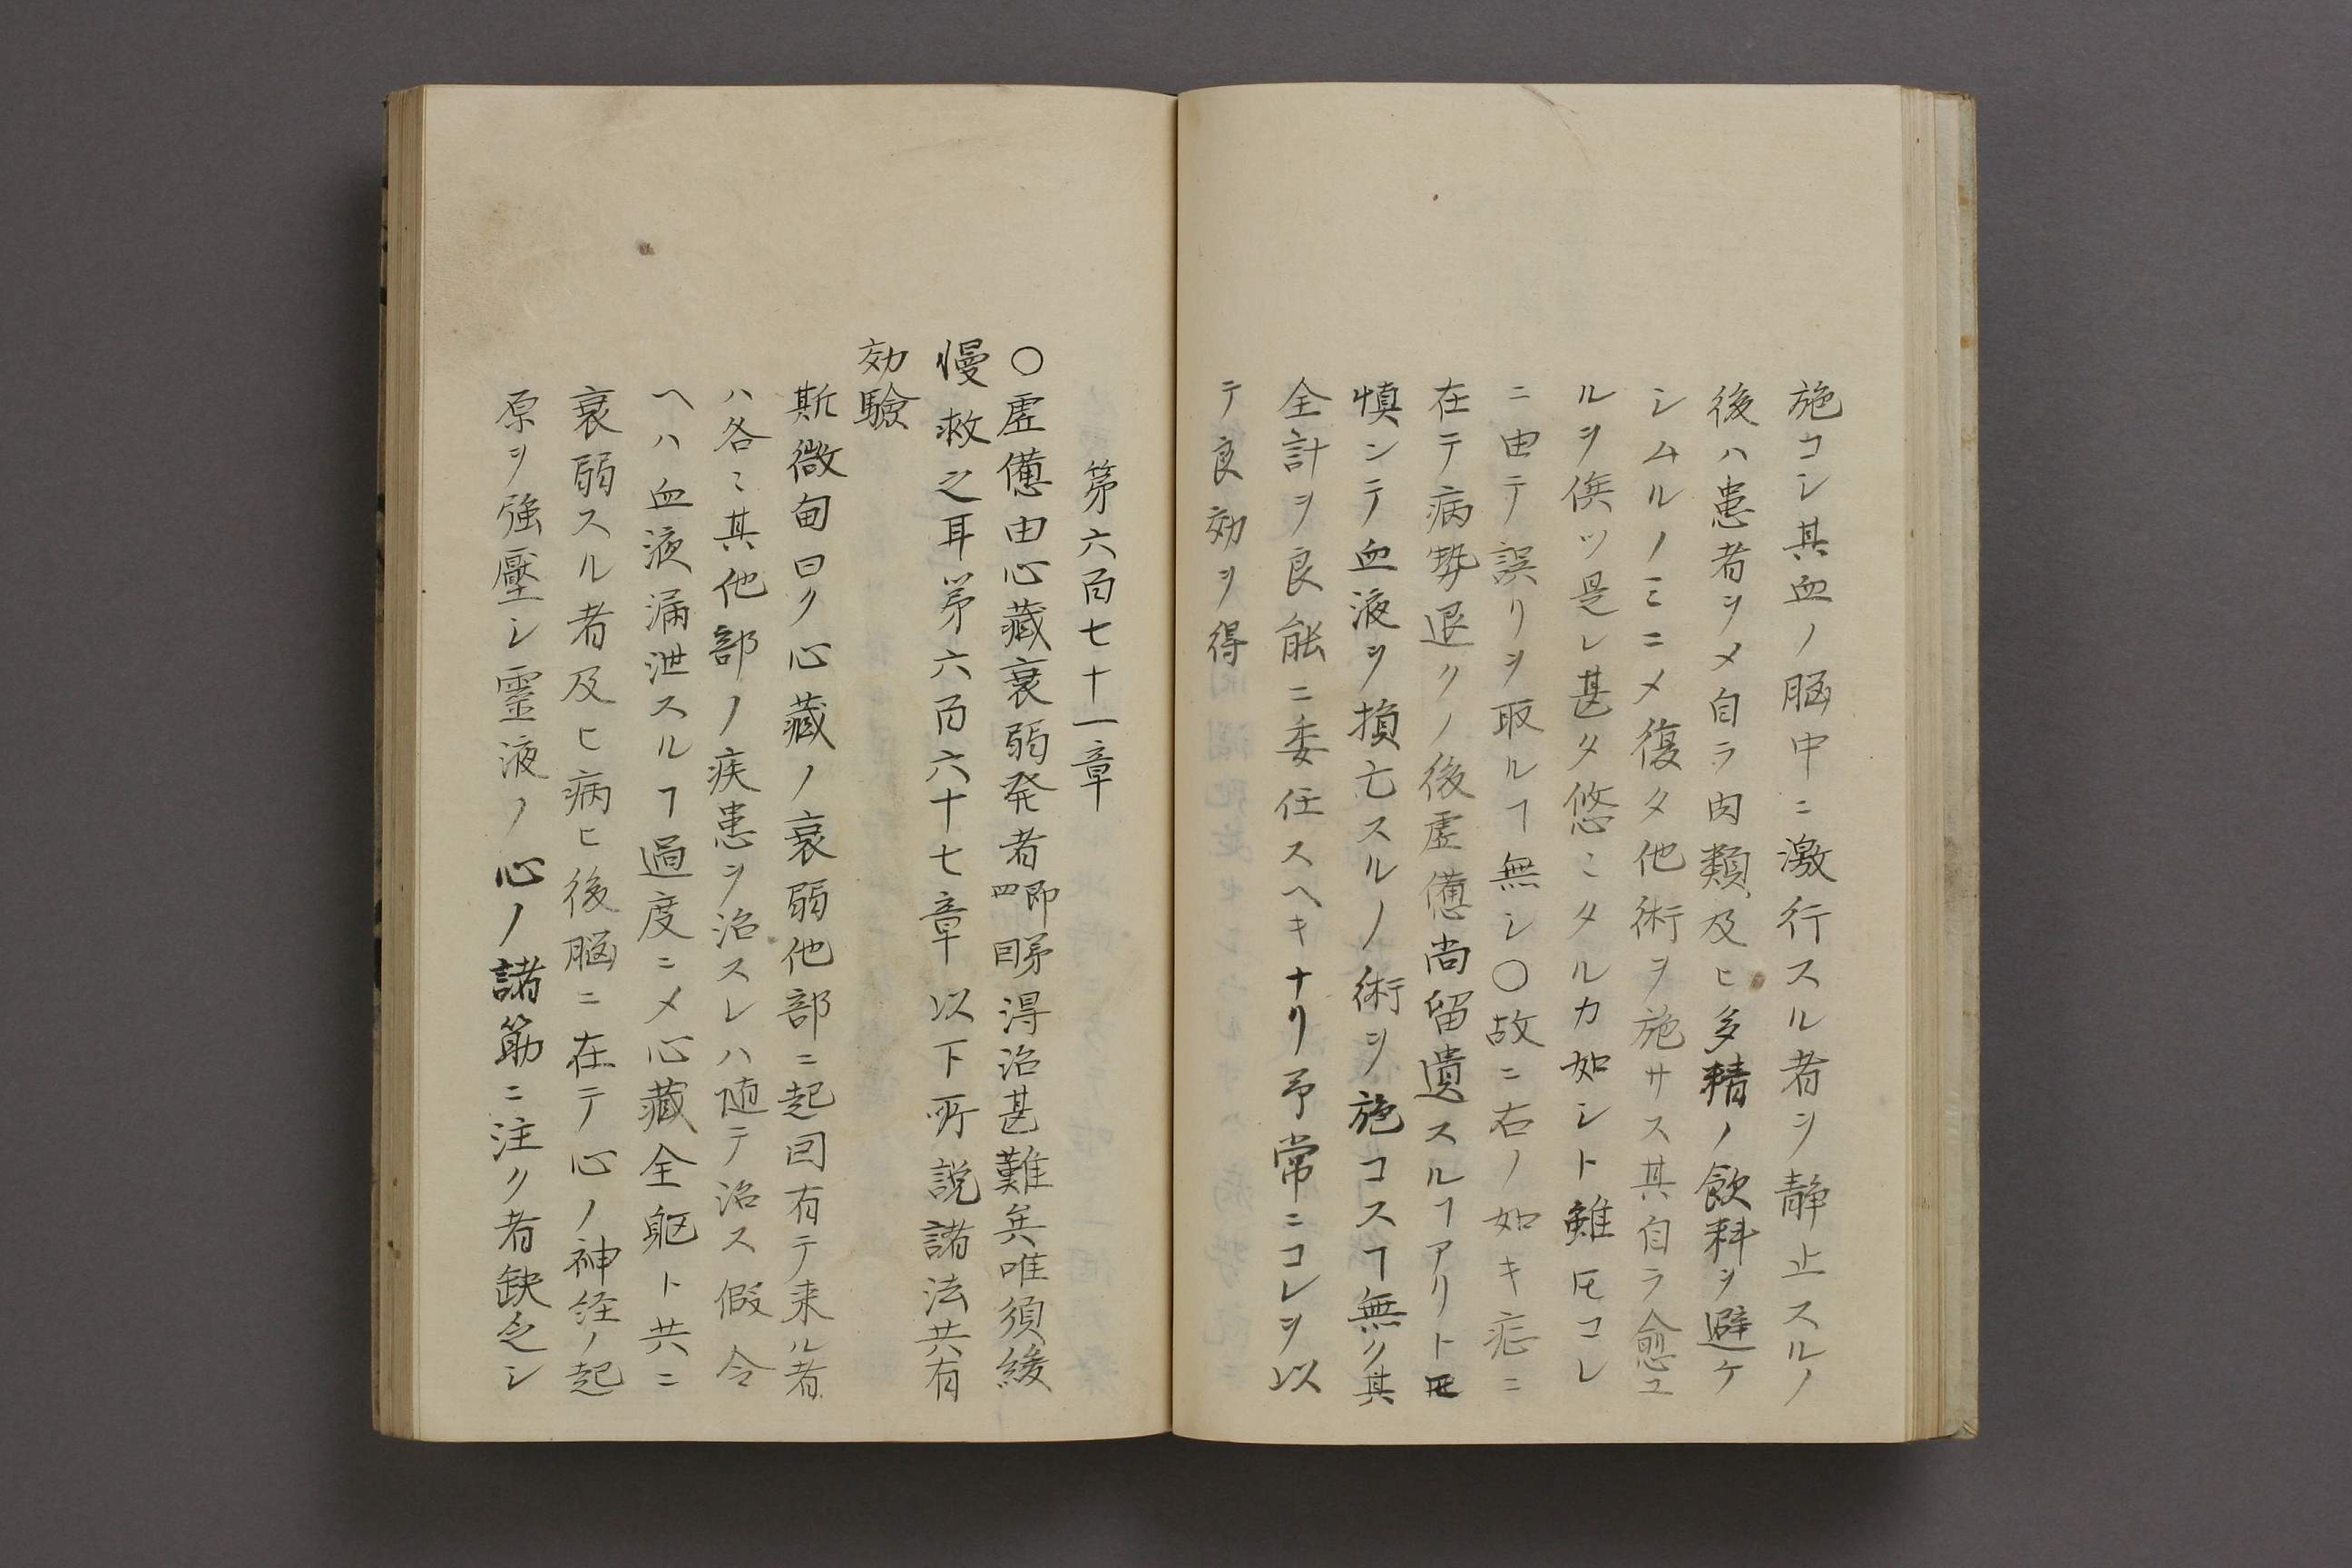 施コシ其血ノ脳中ニ激行スル者ヲ静止スルノ
後ハ患者ヲメ自ラ肉類及ヒ多精ノ飲料ヲ避ケ
シムルノミニメ復タ他術ヲ施サス其自ラ愈ユ
ルヲ俟ツ是レ甚タ悠〻タルカ如シト雖𪜈コレ
ニ由テ誤リヲ取ルヿ無シ〇故ニ右ノ如キ症ニ
在テ病勢退クノ後虚憊尚留遺スルヿアリト𪜈
慎ンテ血液ヲ損亡スルノ術ヲ施コスヿ無ク其
全計ヲ良能ニ委任スヘキナリ予常ニコレヲ以
テ良効ヲ得
第六百七十一章
〇虚憊由心藏衰弱発者即第四目得治甚難矣唯須緩
慢救之耳第六百六十七章以下所説諸法共有
効驗
斯微甸曰ク心藏ノ衰弱他部ニ起因有テ来ル者
ハ各〻其他部ノ疾患ヲ治スレハ随テ治ス假令
ヘハ血液漏泄スルヿ過度ニメ心藏全軀ト共ニ
衰弱スル者及ヒ病ヒ後脳ニ在テ心ノ神経ノ起
原ヲ強壓シ靈液ノ心ノ諸筋ニ注ク者缺乏シ